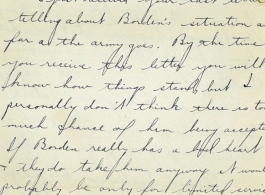 received your last letter
telling about Borden's situation as
far as the army goes. By the time
you receive this letter you will
know how things stand but I
personally don't think there is too
much chance of him being accepted
If Borden really has a bad heart
& they do take him anyway it would
probably be only for limited service